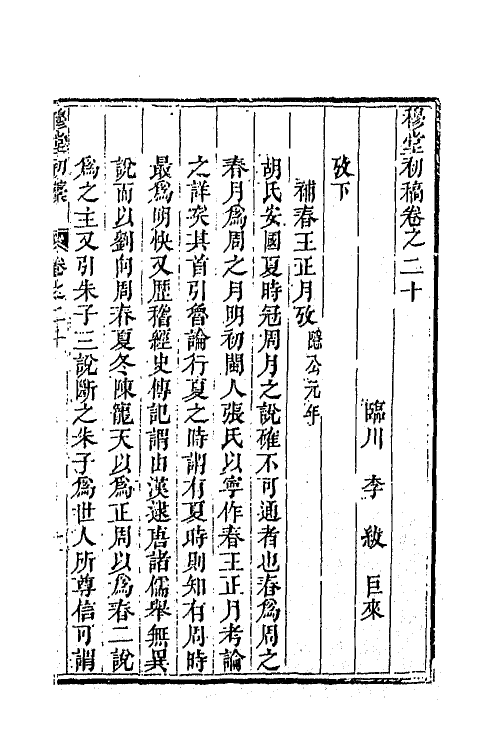 穆堂初稿卷之二十
臨川 李 紱 巨來
攷下
補春王正月攷隱公元年
胡氏安國夏時冠周月之說確不可通者也春爲周之
春月爲周之月明初閩人張氏以寧作春王正月考論
之詳矣其首引魯論行夏之時謂有夏時則知有周時
最爲明快又歷稽經史傳記謂由漢逮唐諸儒舉無異
說而以劉向周春夏冬陳寵天以爲正周以爲春二說
爲之主又引朱子三說斷之朱子爲世人所尊信可謂
穆堂初稾 卷之二十